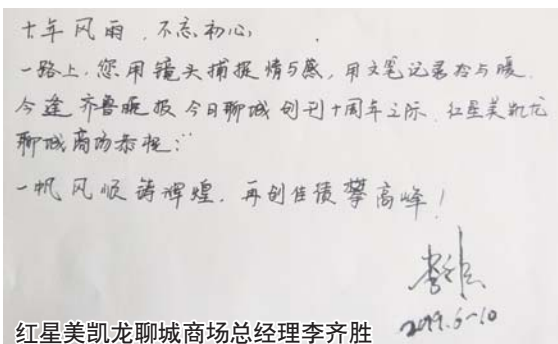 十年风雨，不忘初心，
一路上，您用镜头捕捉情与感，用文笔记录冷与暖，
今逢齐鲁晚报今日聊城创刊十周年之际，红星美凯龙
聊城商场恭祝：
一帆风顺铸辉煌，再创佳绩攀高峰！
2019.6-10
红星美凯龙聊城商场总经理李齐胜